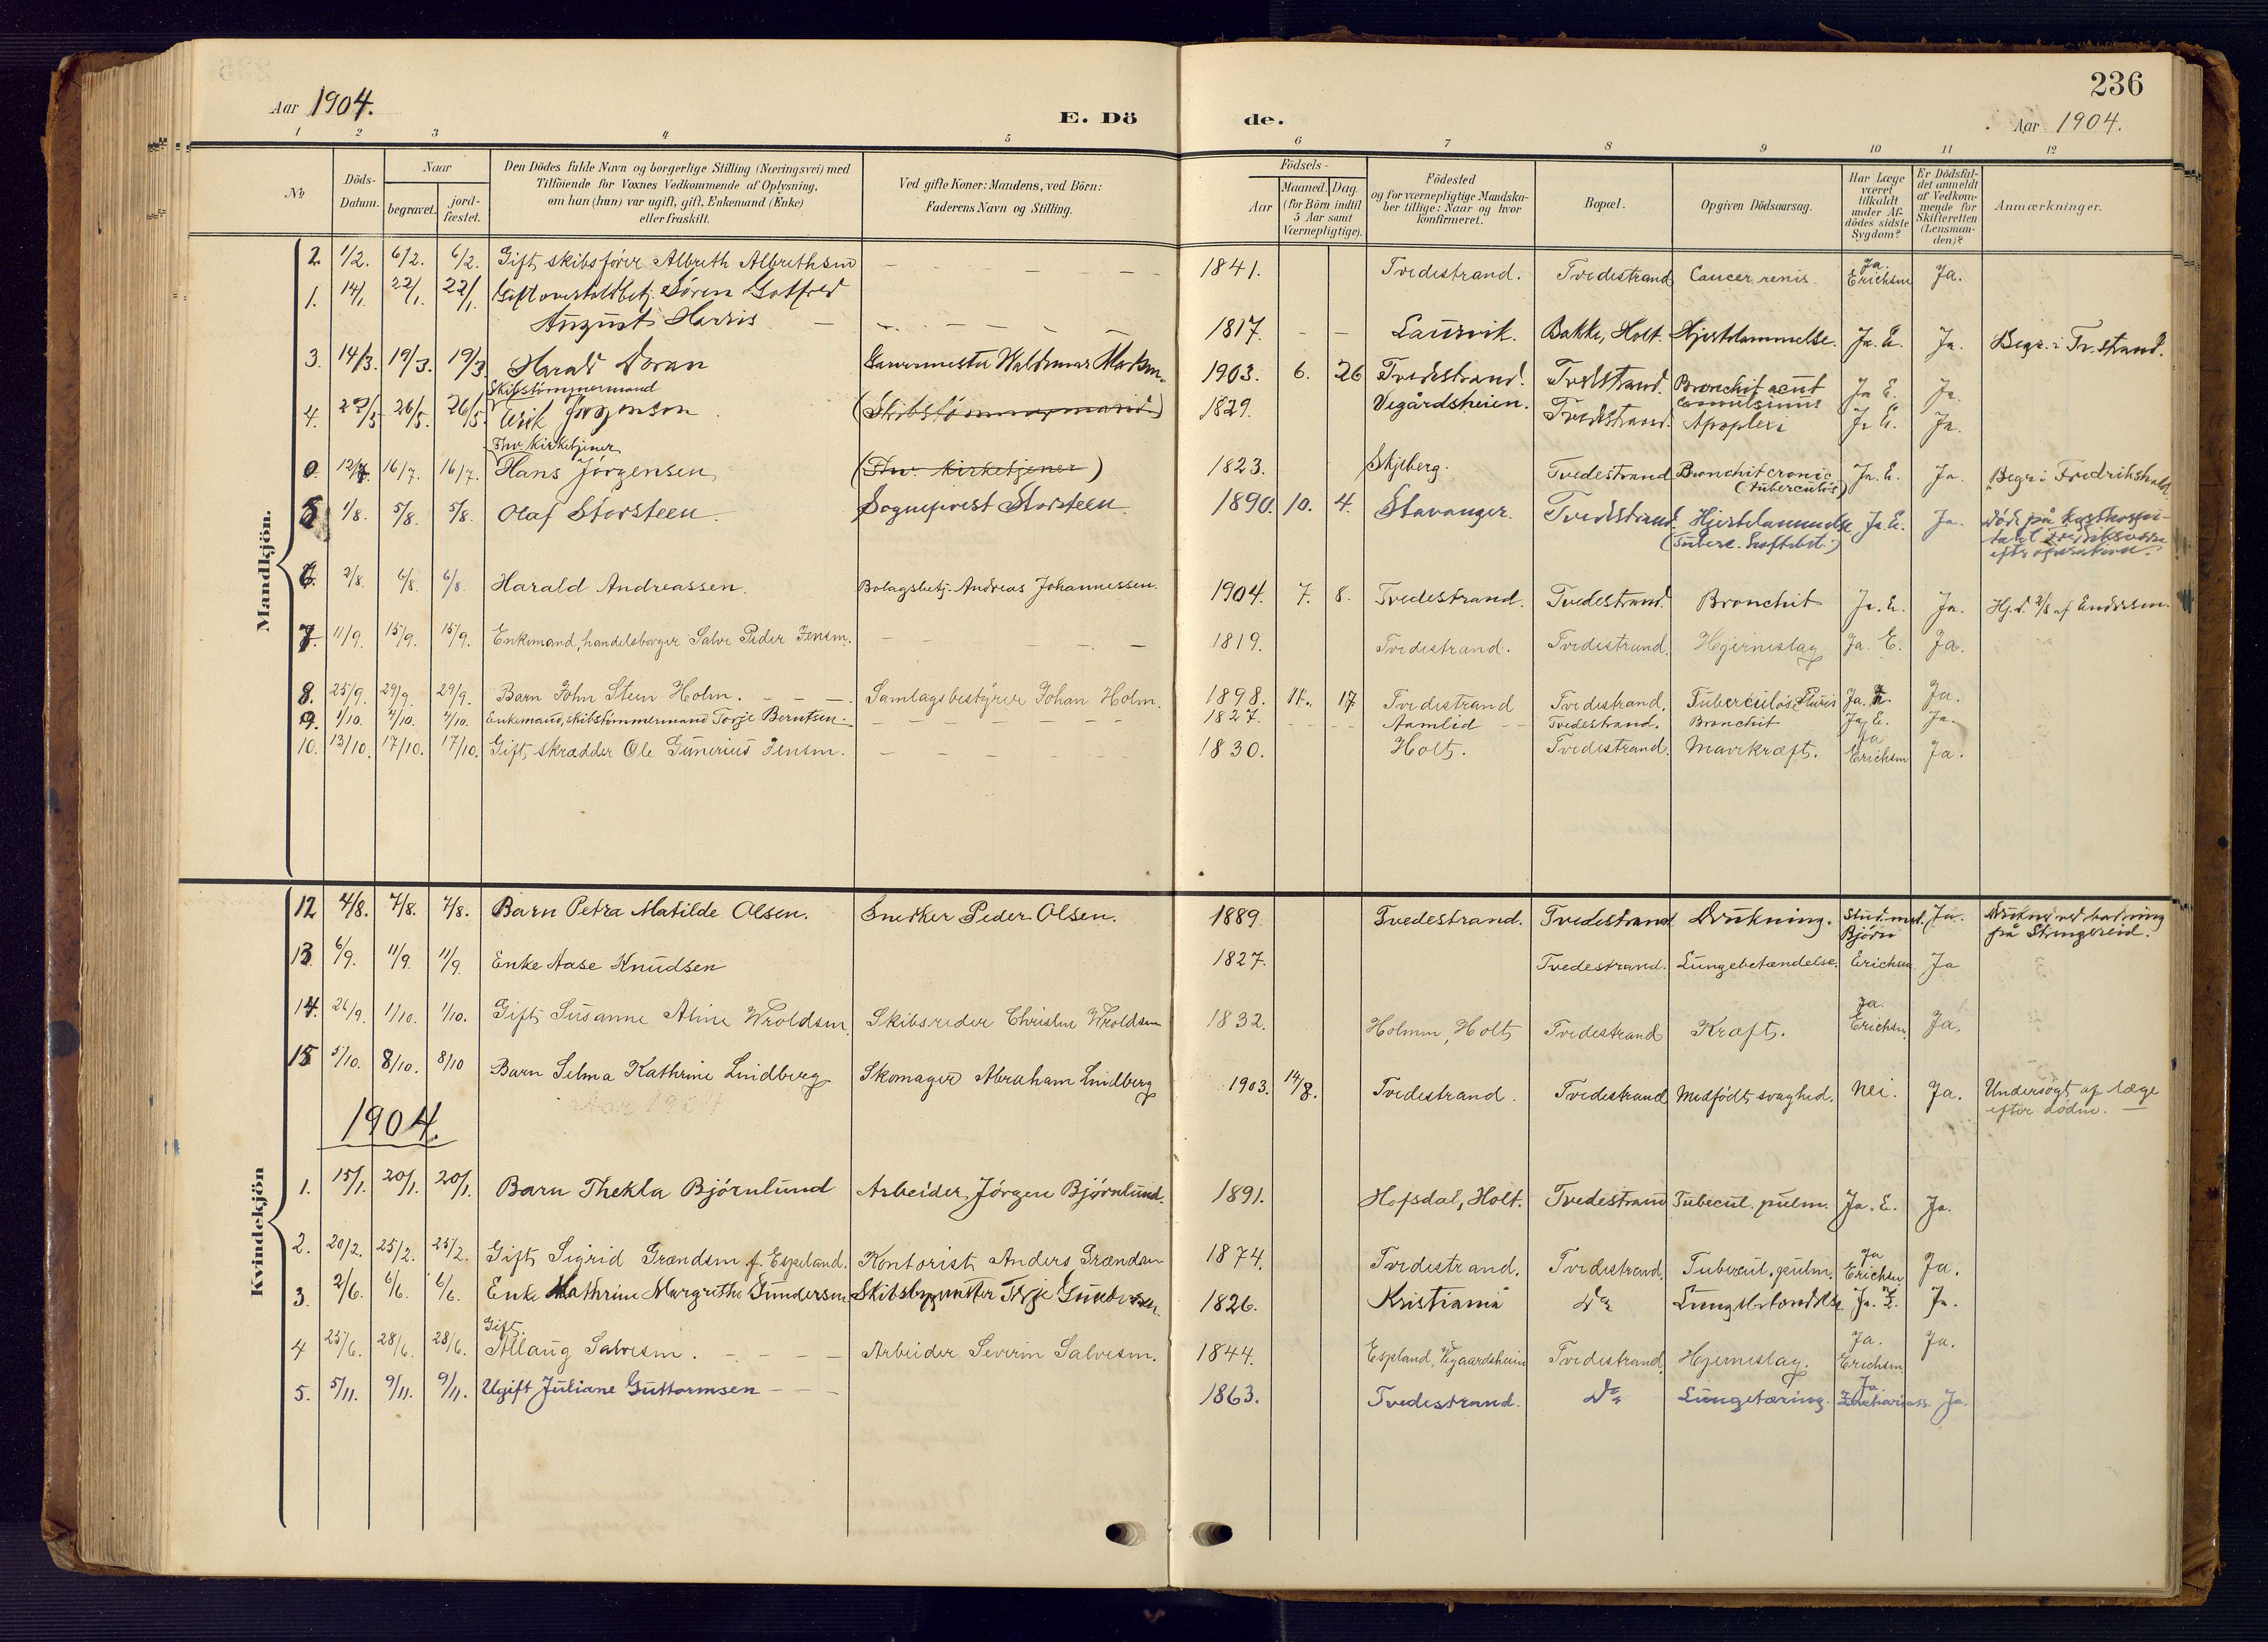 236
Aar 1904.
E. Dö de.
Aar 1904.
1 2 3 4 5 6 7 8 9 10 11 12
No
Döds-Datum.
Naar
begravet.
jord-fæstet.
Den Dödes fulde Navn og borgerlige Stilling (Næringsvei) med
Tilföiende for Voxnes Vedkommende af Oplysning,
om han (hun) var ugift, gift, Enkemand (Enke)
eller fraskilt.
Ved gifte Koner: Mandens, ved Börn:
Faderens Navn og Stilling.
Födsels-
Aar
Maaned. Dag.
(for Börn indtil
5 Aar samt
Værnepligtige).
Födested
og for værnepligtige Mandska-
ber tillige: Naar og hvor
konfirmeret.
Bopæl.
Opgiven Dödsaarsag.
Har Læge
været
tilkaldt
under Af-
dödes sidste
Sygdom?
Er Dödsfal-
det anmeldt
af Vedkom-
mende for
Skifteretten
(Lensman-
den)?
Anmærkninger.
Mandkjön.
2. 1/2. 6/2. 6/2. Gift, skibsfører Albreth Albrethsen 1841. Tvedestrand. Tvedestrand Cancer renis. Ja Erichsen Ja.
1. 14/1. 22/1. 22/1. Gift overtoldbetj. Søren Gotfred
August Harris 1817. Laurvik. Bakke, Holt. Hjertelammelse. Ja. E. Ja. Begr. i Tv.strand.
3. 14/3. 19/3. 19/3. Harald Doran Garvermester Waldemar 1903. 6. 26 Tvedestrand. Tvedstrand. Bronchit acut
Skibstømmermand
4. 26/5. 26/5. Jørgenson (Skibstømmermand) 1829. Vegårdsheien. Tvedstrand. Apoplexi Ja E. Ja.
Fhv. Kirketjener
0. 12/7. 16/7. 16/7. Hans Jørgensen (Fhv. kirketjener) 1823. Skjeberg. Tvedestrand Bronchit cronic (tuberculøs) Ja. E. Ja. Begr. i Fredrikshald
5 1/8. 5/8. 5/8. Olaf Storsteen. Sogneprest Storsteen. 1890. 10. 4. Stavanger. Tvedstrand. Hjertelammelse Ja. E. Ja. Død på kysthospi-
talet Fredriksværn
efter operation.
6. 2/8. 6/8. 6/8. Harald Andreassen. Bolagsbetj. Andreas Johannessen. 1904. 7. 8. Tvedestrand. Tvedestrand. Bronchit Ja. E. Ja. Hj.d. 2/8 af
7. 11/9. 15/9. 15/9. Enkemand, handelsborger Salve Peder Jensen. 1819. Tvedestrand. Tvedestrand. Hjerneslag Ja. E. Ja.
8. 25/9. 29/9. 29/9. Barn John Steen Holm. Samlagsbestyrer Johan Holm. 1898. 11. 17 Tvedestrand Tvedestrand. Tuberculøs Pluris Ja. E. Ja.
9. 1/10. 4/10. 4/10. Enkemand, skibstømmermand Torje Berntsen. 1827. Aamlid Tvedestrand. Bronchit Ja, E. Ja.
10. 13/10. 17/10. 17/10. Gift, skrædder Ole Gunerius Jensen. 1830. Holt. Tvedestrand. Mavekræft. Ja Erichsen Ja.
Kvindekjön
12 4/8. 7/8. 7/8. Barn Petra Matilde Olsen. Snedker Peder Olsen. 1889. Tvedestrand. Tvedestrand Drukning. Stud. med. Bjørn Ja. Druknet ved badning
på Strengereid.
13. 6/9. 11/9. 11/9. Enke Aase Knudsen 1827. Tvedestrand. Lungebetændelse. Erichsen. Ja
14. 26/9. 1/10. 1/10. Gift, Susanne Aline Wroldsen Skibsreder Christen Wroldsen 1832. Holmen, Holt Tvedestrand Kræft. Ja. Erichsen Ja.
15 5/10. 8/10. 8/10 Barn Selma Kathrine Lindberg Skomager Abraham Lindberg 1903. 14/8. Tvedestrand. Tvedestrand Medfødt svaghed. Nei. Ja. Undersøgt af læge
efter døden.
1904.
1. 15/1. 20/1. 20/1. Barn Thekla Bjørnlund Arbeider Jørgen Bjørnlund. 1891. Hofsdal, Holt. Tvedestrand Tubecul. pulm. Ja. E. Ja.
2. 20/2. 25/2. 25/2. Gift, Sigrid Grændsen f. Espeland. Kontorist Anders Grændsen 1874. Tvedestrand. Tvedestrand. Tubercul. pulm. Ja Erichsen Ja.
3. 2/6. 6/6. 6/6. Enke Kathrine Margrethe Gundersen Skibsbygmester Terje Gundersen 1826. Kristiania Do Lungebetændelse Ja. E. Ja.
Gift
4 25/6. 28/6. 28/6. Allaug Salvesen. Arbeider Severin Salvesen. 1844. Espland, Vegaardsheien Tvedestrand Hjerneslag. Ja. Erichsen Ja.
5. 5/11. 9/11. 9/11. Ugift Juliane Guttormsen 1863. Tvedestrand. Do Lungetæring. Ja Zachariass. Ja.